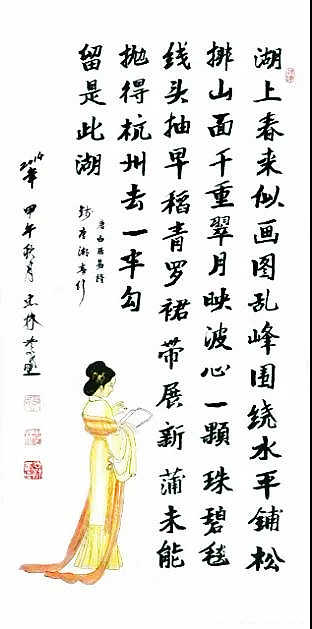 湖上春来似画图乱峰围绕水平铺松
排山面千重翠月映波心一颗珠碧毯
线头抽早稻青罗裙带展新蒲未能
抛得杭州去一半勾
留是此湖
唐白居易诗
钱唐湖春行
2014年 甲午秋月